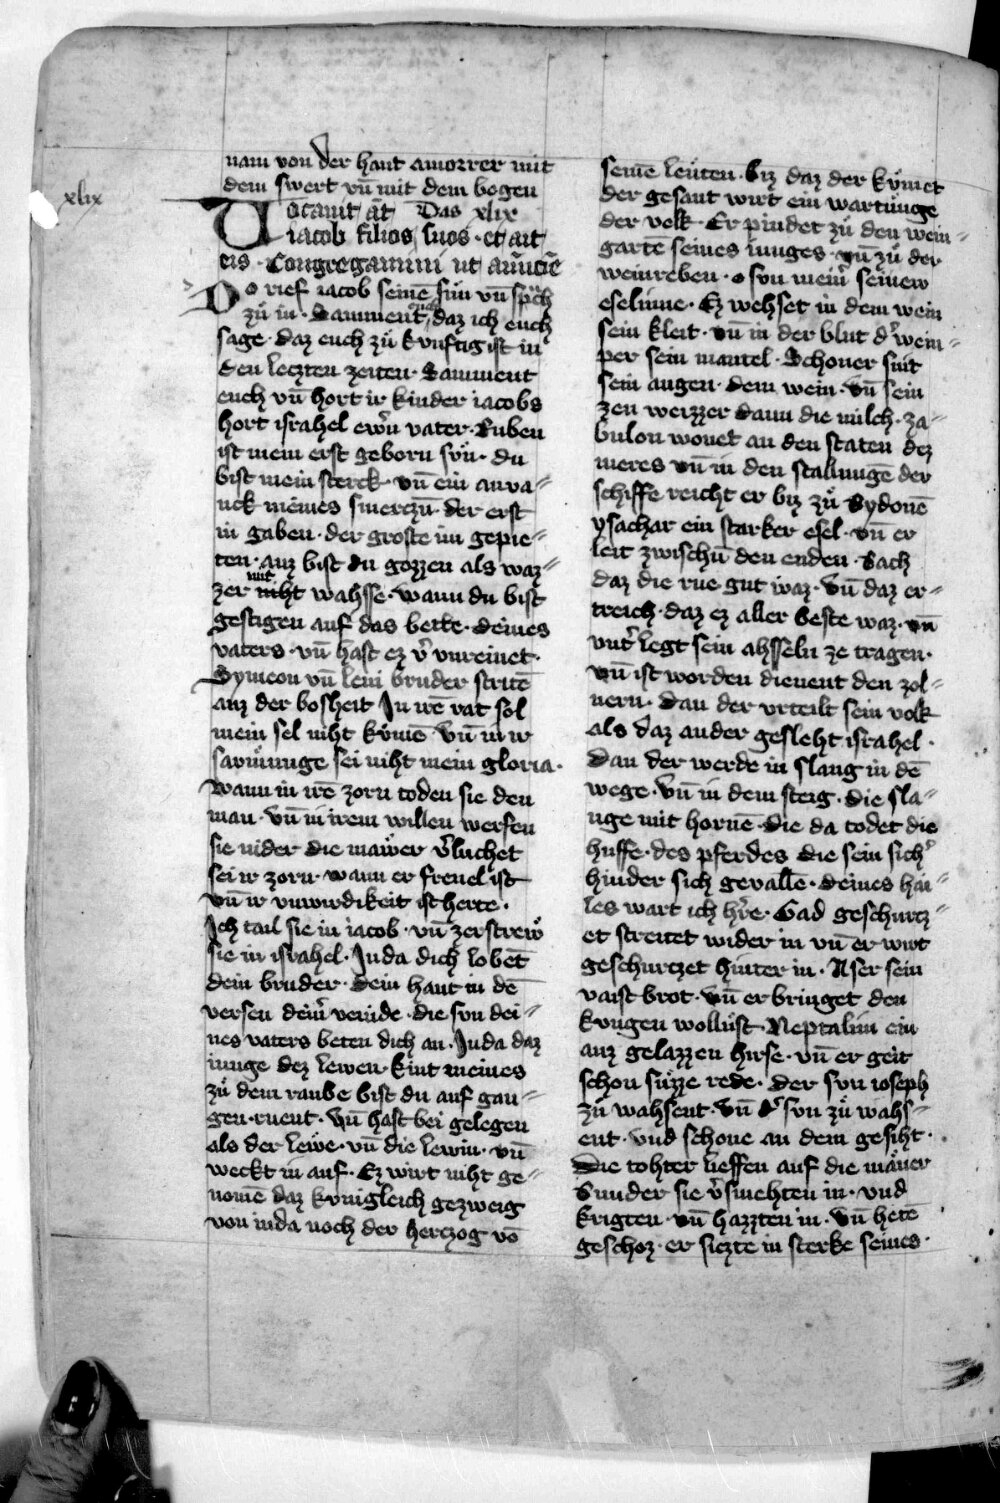 xlix
nam von der hant amorrer mit
dem swert vn̄ mit dem bogen
Uocauit āt Das xlix
iacob filios suos · et ait
eis · Congregamini ut anūciē
Do rief iacob seinē sůn vn̄ sprach
zů in · Samment euch daz ich euch
sage · daz euch zů kvnftig ist in
den leczten zeiten · Samment
euch vn̄ hort ir kinder iacobs
hort israhel ewrn vater · Ruben
ist mein erst geborn svn · du
bist mein sterck · vn̄ ein anva⸗
nck meines smerczn̄ · der erst
in gaben · der groste in gepie⸗
ten · auz bist du gozzen als waz⸗
zer niht wahsse · wann du bist
gestigen auf das bette · deines
vaters · vn̄ hast ez v̄ vnreinet ·
Symeon vn̄ leui bruder stritē
auz der bosheit In irē rat sol
mein sel niht kvmē · Vn̄ in ir
samnunge sei niht mein gloria ·
Wann in irē zorn toden sie den
man · vn̄ in irem willen werfen
sie nider die mawer v̄luchet
sei ir zorn · wann er freuel ist
vn̄ ir vnwirdikeit ist herte ·
Ich tail sie in iacob · vn̄ zerstrew
sie in israhel · Juda dich lobēt
dein bruder · dein hant in dē
versen dein̄ veinde · die svn dei⸗
nes vaters beten dich an · Juda daz
iunge dez lewen · kint meines
zů dem raube bist du auf gan⸗
gen · ruent · Vn̄ hast bei gelegen
als der lewe · vn̄ die lewin · vn̄
weckt in auf · Ez wirt niht ge⸗
nomē daz kvnigleich gezweig
von iuda noch der herczog vō
seinē leuten · biz daz der kvmet
der gesant wirt ein wartunge
der volk · Er pindet zů den wein⸗
gartē seines iunges · vn̄ zů der
weinreben · o svn mein̄ seinew
eselinne · Ez wehset in dem wein
sein kleit · vn̄ in der blut d' wein⸗
per sein mantel · Schoner sint
sein augen · dem wein · vn̄ sein
zen weizzer dann die milch · za⸗
bulon wonet an den staten dez
meres vn̄ in den stallungē der
schiffe reicht er biz zů Sydonē
ysachar ein starker esel · vn̄ er
leit zwischn̄ den enden · Sach
daz die rue gut waz · Vn̄ daz er⸗
treich · daz ez aller beste waz · vn̄
vnt' legt sein ahsseln ze tragen ·
vn̄ ist worden dienent den zol⸗
nern · Dan der vrteilt sein volk
als daz ander gesleht israhel ·
Dan der werde in slang in dē
wege · Vn̄ in dem steig · die sla⸗
nge mit hornē · die da todet die
huffe · des pferdes die sein sich'
hinder sich gevallē · deines hai⸗
les wart ich h're · Gad geschurcz⸗
et streitet wider in vn̄ er wirt
geschurtzet hinter in · Aser sein
vaist brot · vn̄ er bringet den
kvngen wollust · Neptalim ein
auz gelazzen hirse · vn̄ er geit
schon suzze rede · der svn ioseph
zů wahsent · Vn̄ d' svn zů wahs⸗
ent · vnd schone an dem gesiht ·
Die tohter lieffen auf die mauer
Sunder sie v̄smehten in · vnd
krigten · vn̄ hazzten in · Vn̄ hetē
geschoz · er siczte in sterke seines ·